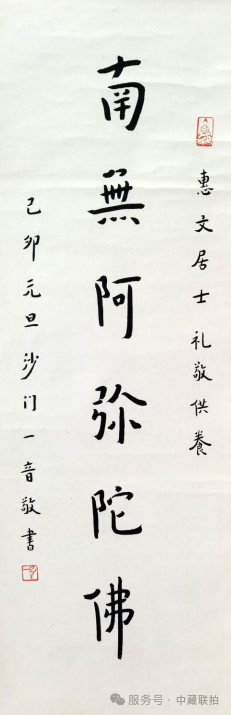 惠文居士礼敬供养
南無阿弥陀佛
己卯元旦沙门一音敬書
服务号·中藏联拍